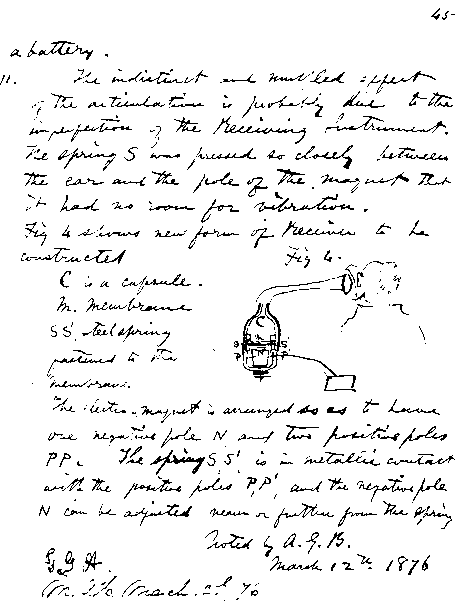 45
a battery.
11. The indistinct and mumbled effect
of the articulation is probably due to the
imperfection of the Receiving Instrument.
The spring S was pressed so closely between
the ear and the pole of the magnet that
it had no room for vibration.
Fig 4 shows new form of Receiver to be
constructed
Fig 4.
C is a capsule.
M. Membrane
SS' steel spring
fastened to the
membrane.
The electro-magnet is arranged so as to have
one negative pole N and two positive poles
P.P. The spring S,S' is in metallic contact
with the positive poles P,P', and the negative pole
N can be adjusted nearer or further from the spring
Noted by A.G.B.
March 12th 1876
G.G.H.
March 76